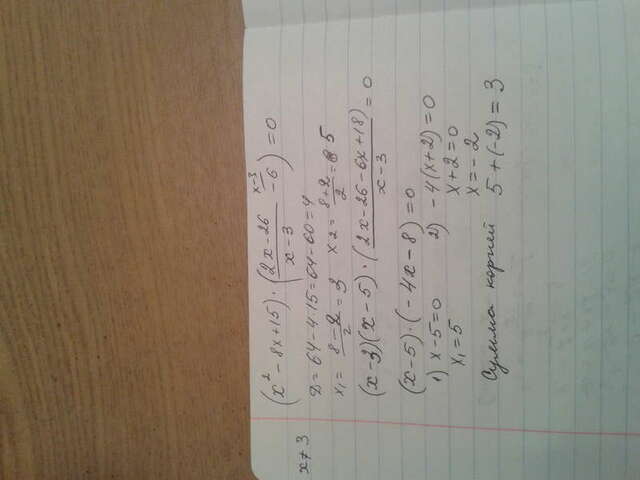 x≠3
(x² - 8x + 15) · ((2x - 26)/(x - 3) - 6 ^(x-3)) = 0
D = 64 - 4·15 = 64 - 60 = 4
x₁ = (8 - 2)/2 = 3 x2 = (8 + 2)/2 = 5
(x - 3)(x - 5) · (2x - 26 - 6x + 18)/(x - 3) = 0
(x - 5) · (-4x - 8) = 0
1) x - 5 = 0 2) -4(x + 2) = 0
x₁ = 5 x + 2 = 0
x = -2
Сумма корней 5 + (-2) = 3